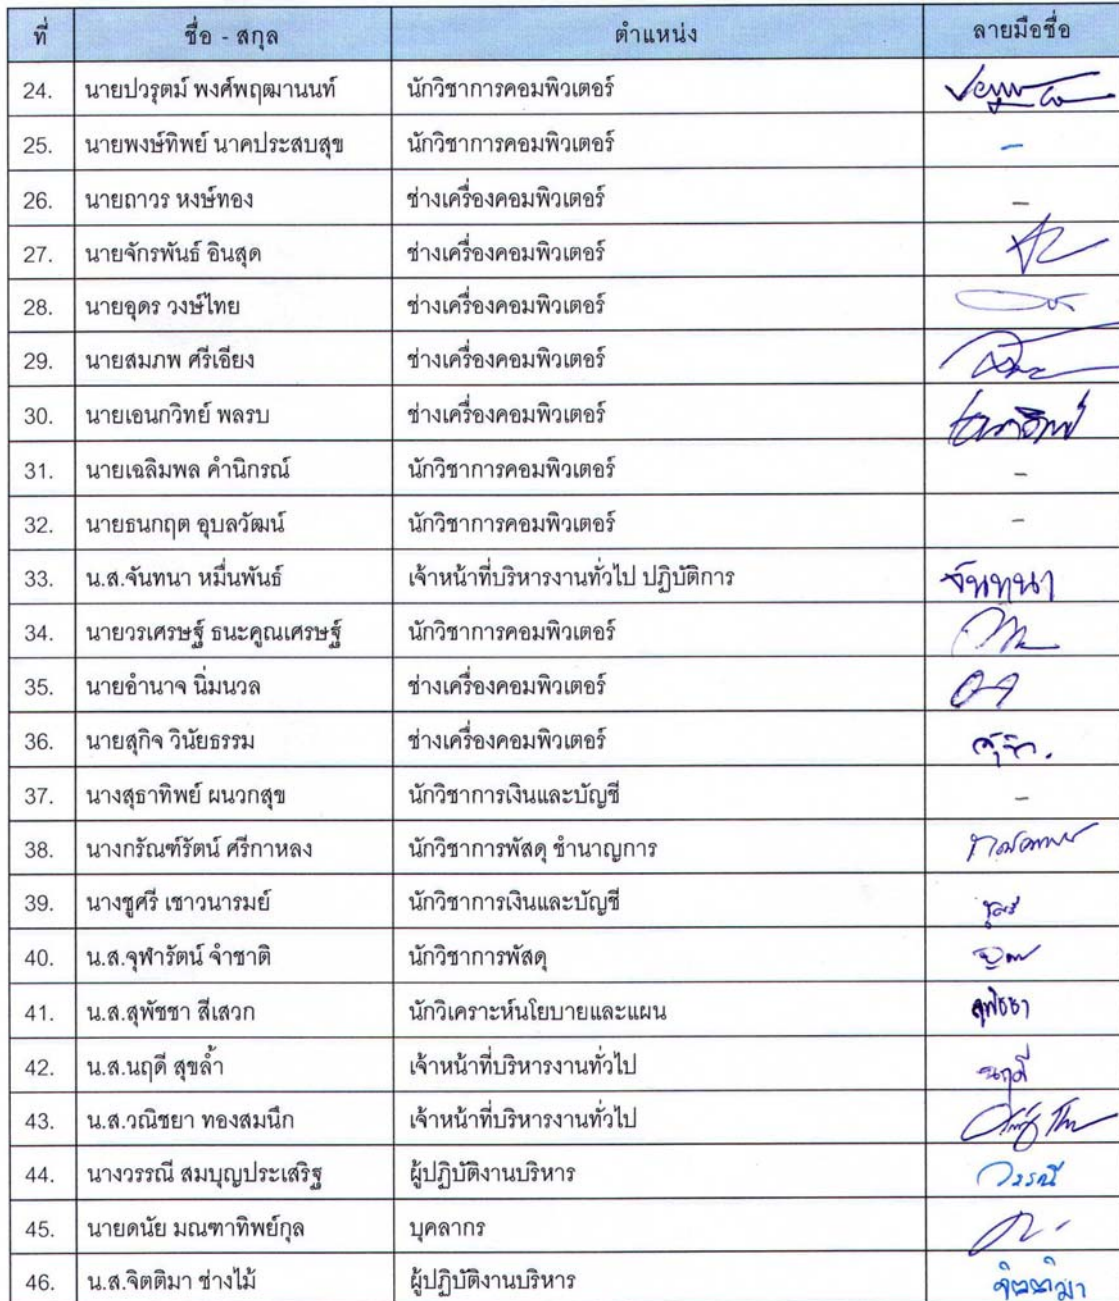 ที่ ชื่อ - สกุล ตำแหน่ง ลายมือชื่อ
24. นายปวรุตม์ พงศ์พฤฒานนท์ นักวิชาการคอมพิวเตอร์
25. นายพงษ์ทิพย์ นาคประสบสุข นักวิชาการคอมพิวเตอร์ -
26. นายถาวร หงษ์ทอง ช่างเครื่องคอมพิวเตอร์ -
27. นายจักรพันธ์ อินสุด ช่างเครื่องคอมพิวเตอร์
28. นายอุดร วงษ์ไทย ช่างเครื่องคอมพิวเตอร์
29. นายสมภพ ศรีเอียง ช่างเครื่องคอมพิวเตอร์
30. นายเอนกวิทย์ พลรบ ช่างเครื่องคอมพิวเตอร์
31. นายเฉลิมพล คำนิกรณ์ นักวิชาการคอมพิวเตอร์ -
32. นายธนกฤต อุบลวัฒน์ นักวิชาการคอมพิวเตอร์ -
33. น.ส.จันทนา หมื่นพันธ์ เจ้าหน้าที่บริหารงานทั่วไป ปฏิบัติการ จันทนา
34. นายวรเศรษฐ์ ธนะคูณเศรษฐ์ นักวิชาการคอมพิวเตอร์
35. นายอำนาจ นิ่มนวล ช่างเครื่องคอมพิวเตอร์
36. นายสุกิจ วินัยธรรม ช่างเครื่องคอมพิวเตอร์
37. นางสุธาทิพย์ ผนวกสุข นักวิชาการเงินและบัญชี -
38. นางกรัณฑ์รัตน์ ศรีกาหลง นักวิชาการพัสดุ ชำนาญการ
39. นางชูศรี เชาวนารมย์ นักวิชาการเงินและบัญชี ชูศรี
40. น.ส.จุฬารัตน์ จำชาติ นักวิชาการพัสดุ
41. น.ส.สุพัชชา สีเสวก นักวิเคราะห์นโยบายและแผน สุพัชชา
42. น.ส.นฤดี สุขล้ำ เจ้าหน้าที่บริหารงานทั่วไป นฤดี
43. น.ส.วณิชยา ทองสมนึก เจ้าหน้าที่บริหารงานทั่วไป
44. นางวรรณี สมบุญประเสริฐ ผู้ปฏิบัติงานบริหาร วรรณี
45. นายดนัย มณฑาทิพย์กุล บุคลากร
46. น.ส.จิตติมา ช่างไม้ ผู้ปฏิบัติงานบริหาร จิตติมา